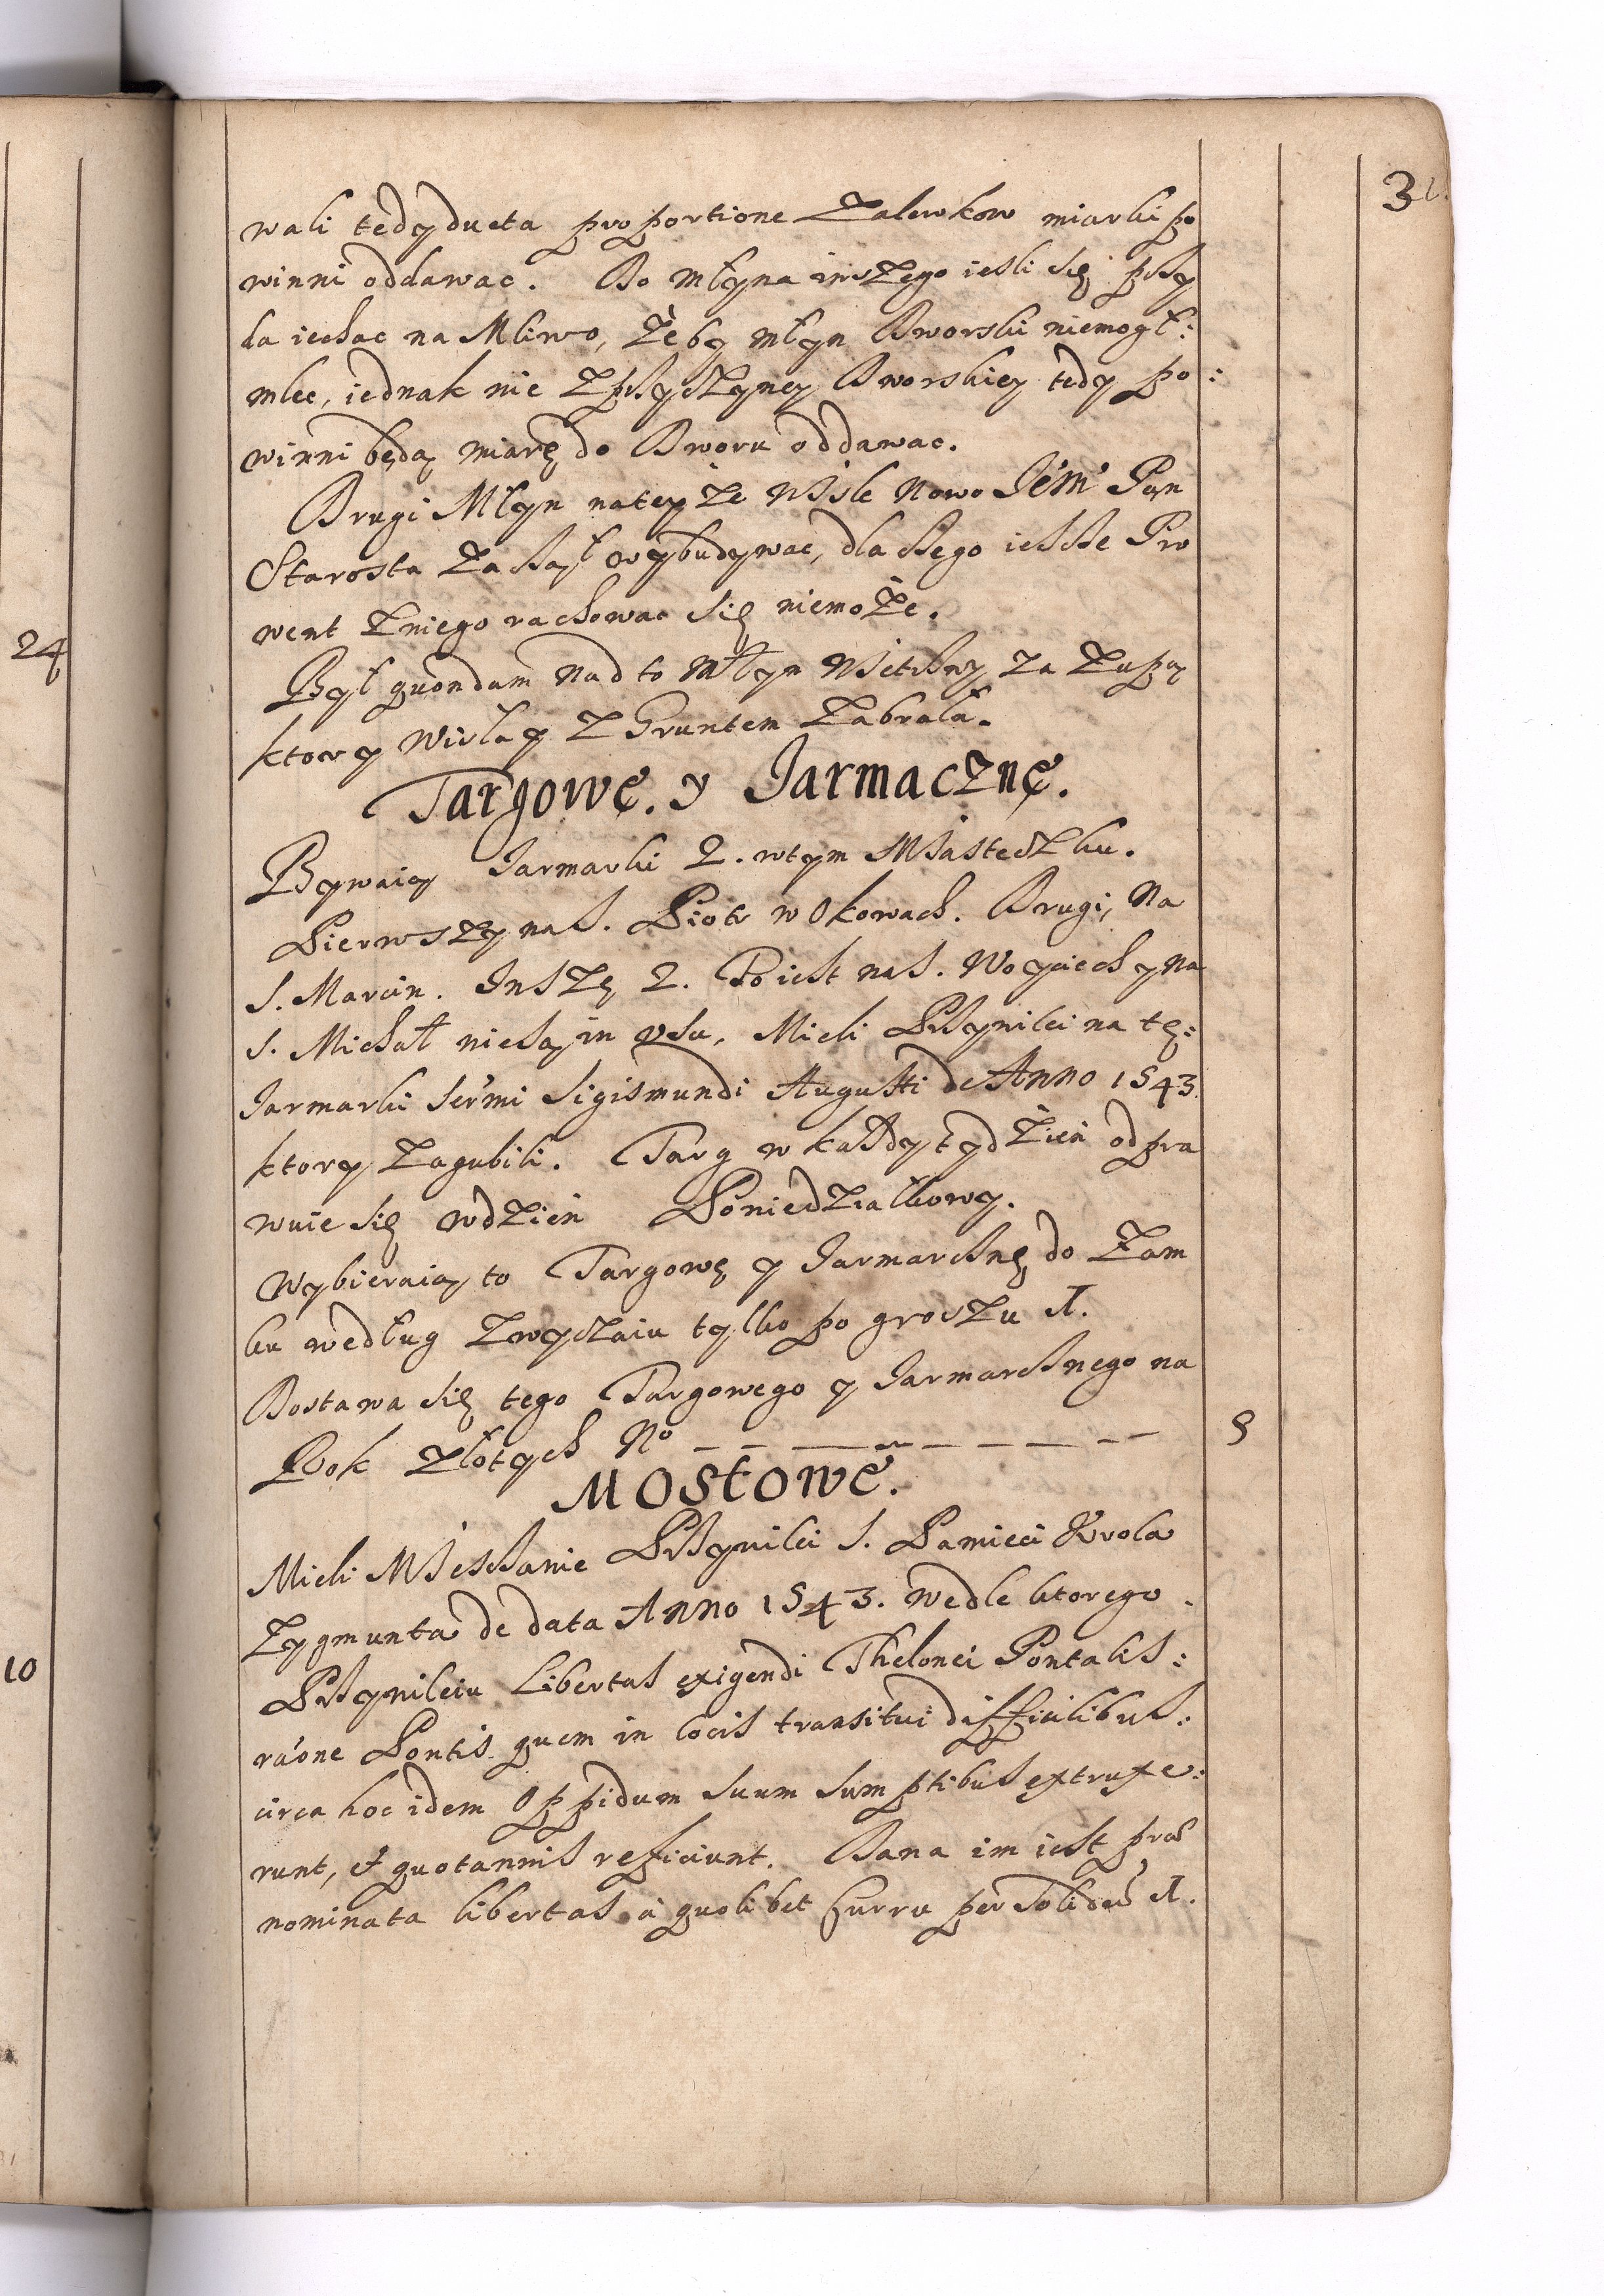 3
wali tedy ducta proportione Zalewkow miarki po
winni oddawac. Do Młyna inszego iesli się przy
da iechac na Mliwo, Żeby młyn Dworski niemogł:
mlec, iednak nie z przyczyney Dworskiey tedy po:
winni będą miarę do Dworu oddawac.
Drugi Młyn nateyże Wisle Nowo Jem̃ Pan
Starosta Zaczął wybudywac, dla czego iescze Pro
went Zniego rachowac się niemoże.
Był quondam Nad to Młyn Wietrzny za Żupą
ktory Wisła y Z Gruntem Zabrała.
Targowe. y Jarmaczne.
Bywaią Jarmarki 2. wtym Miasteczku.
Pierwszy na S. Piotr w Okowach. Drugi, Na
S. Marcin. Inszę 2. To iest na S. Woyciech y na
S. Michał niesą in usu, Mieli Przywilei na tę:
Jarmarki Serm̃i Sigismundi Augusti de Anno 1543.
ktory Zagubili. Targ w każdy tydzień odpra
wuie się wdzień Poniedziałkowy.
Wybieraią to Targowę y Jarmarcznę do Zam
ku według Zwyczaiu tylko po groszu 1.
Dostawa się tego Targowego y Jarmarcznego na
Rok Złotych No 8
Mostowe.
Mieli Miesczanie Przywilei S. Pamięci Krola
Zygmunta de data Anno 1543. wedle ktorego
Przywileiu Libertas exigendi Thelonei Pontalis:
raõne Pontis quem in locis transitui difficilibus:
circa hoc idem Oppidum suum sumptibus extruxe:
runt, et quotannis reficiunt. Dana im iest præ
nominata libertas à quolibet Curru per Solidũ 1.
24
10